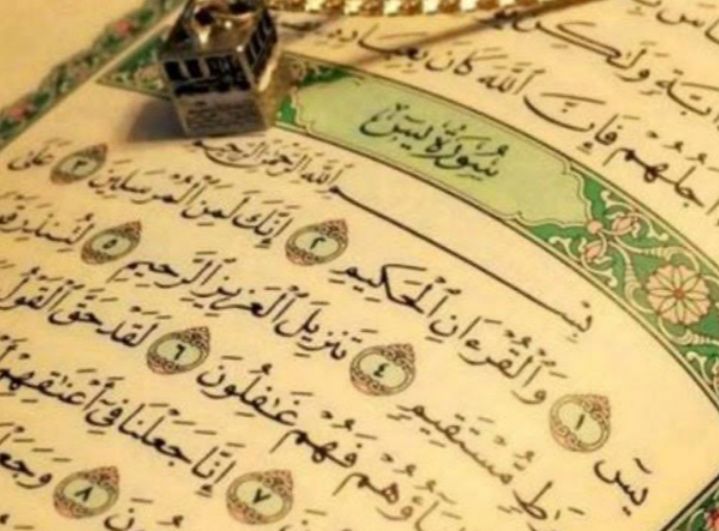 ابَّةٍ وَلَٰكِن
أَجَلُهُمْ فَإِنَّ ٱللَّهَ كَانَ بِعِبَادِهِ
سُورَةُ يسٓ
بِسْمِ ٱللَّهِ ٱلرَّحْمَٰنِ ٱلرَّحِيمِ
يسٓ ١ وَٱلْقُرْءَانِ ٱلْحَكِيمِ ٢ إِنَّكَ لَمِنَ ٱلْمُرْسَلِينَ ٣ عَلَىٰ
ٰطٍ مُّسْتَقِيمٍ ٤ تَنزِيلَ ٱلْعَزِيزِ ٱلرَّحِيمِ ٥ لِتُنذِرَ قَو
بَآؤُهُمْ فَهُمْ غَٰفِلُونَ ٦ لَقَدْ حَقَّ ٱلْقَوْلُ
٧ إِنَّا جَعَلْنَا فِىٓ أَعْنَٰقِهِمْ
ونَ ٨ وَجَعَلْ